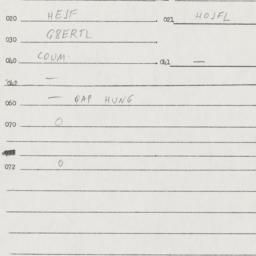 020 HEJF 021 HOJFL
030 G8ERTL
040 COUM 041 —
042 —
060 — GAP HUNG
070 O
072 O